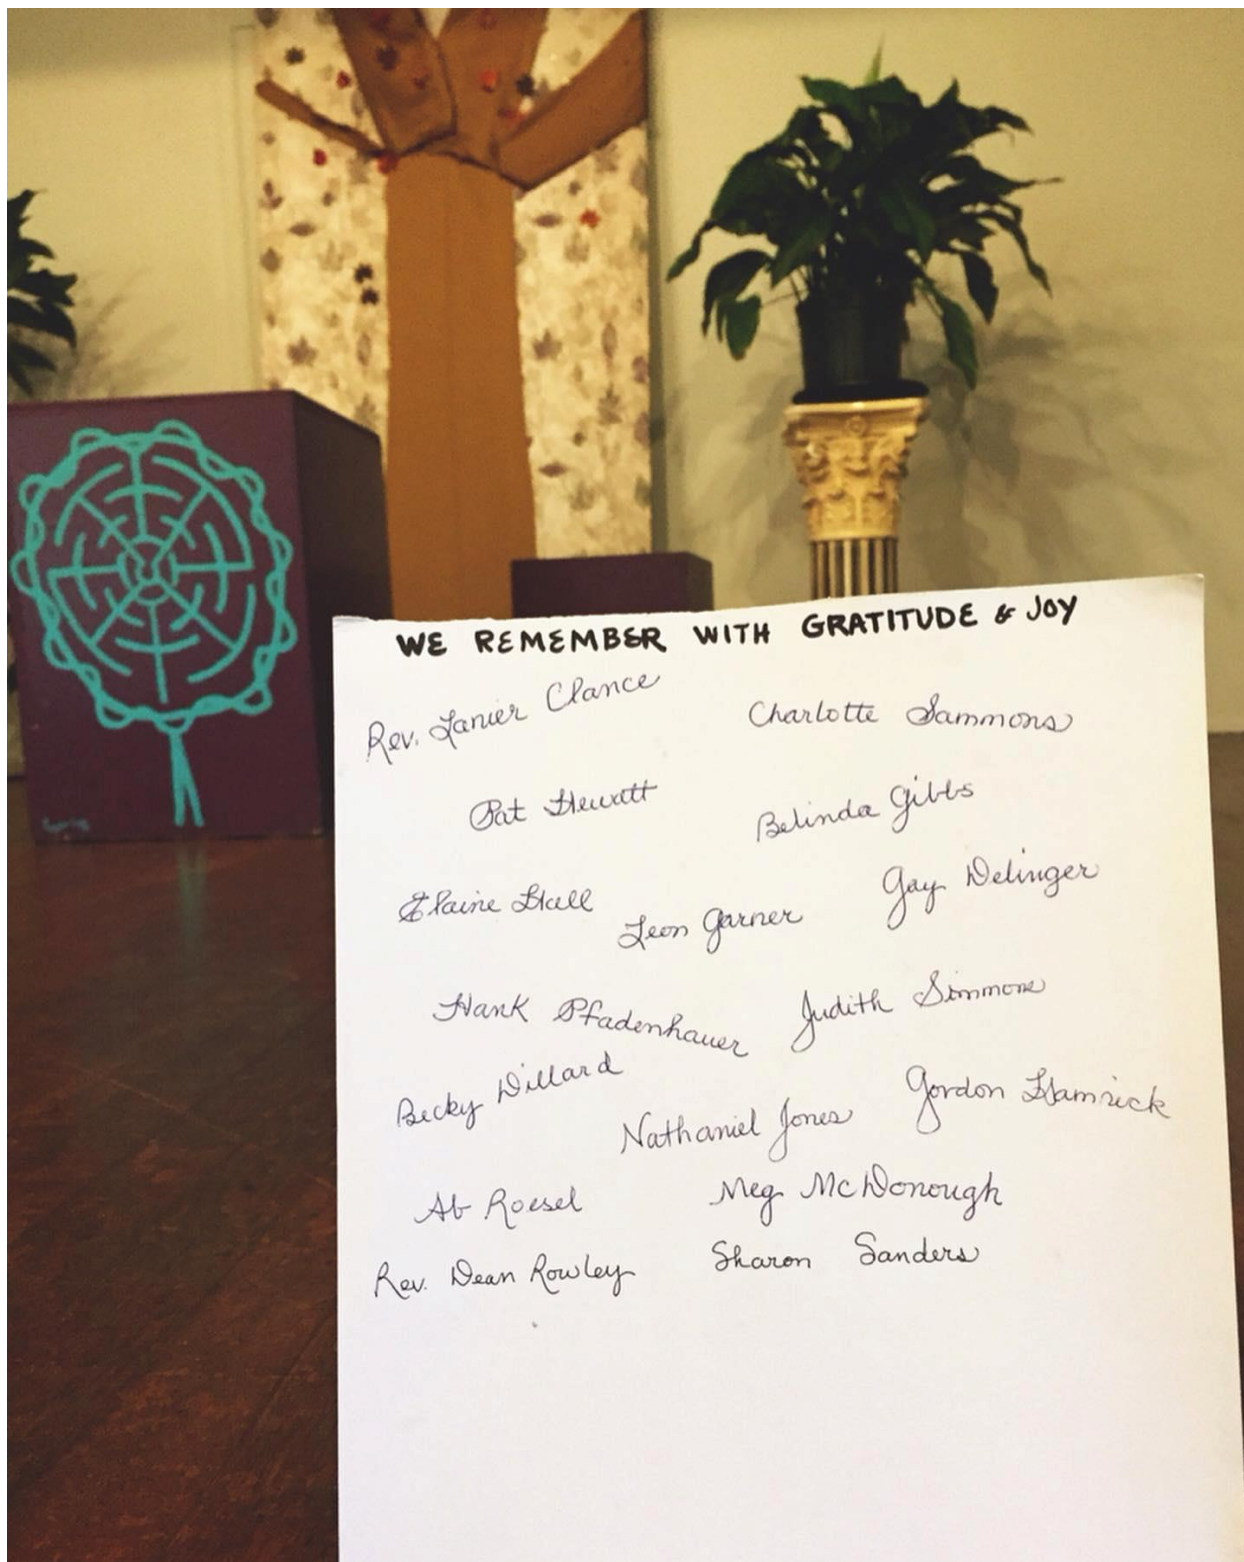 WE REMEMBER WITH GRATITUDE & JOY
Rev. Lanier Clance
Charlotte Sammons
Pat Hewatt
Belinda Gibbs
Elaine Hall
Leon Garner
Gay Delinger
Hank Pfadenhauer
Judith Simmons
Becky Dillard
Nathaniel Jones
Gordon Hamrick
Ab Roesel
Meg McDonough
Rev. Dean Rowley
Sharon Sanders